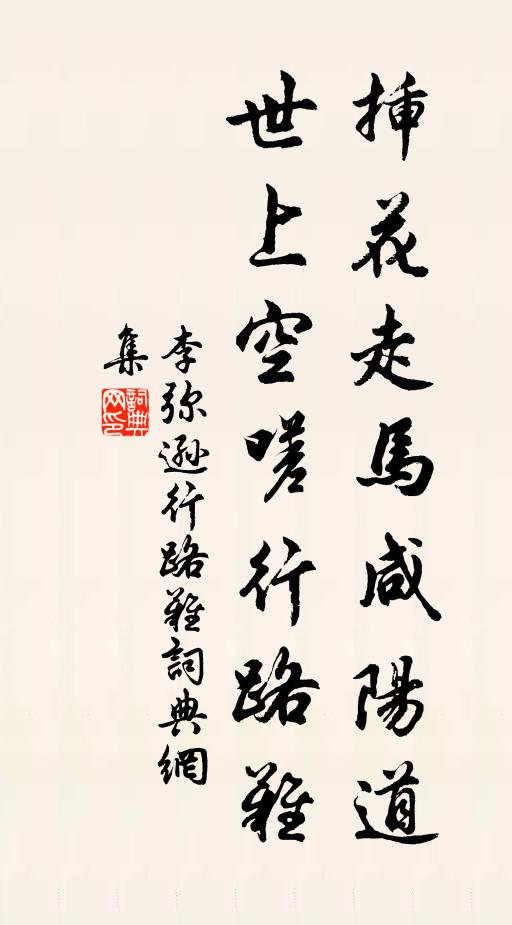 挿花走馬咸陽道
世上空嗟行路難
李弥遜行路難詞典網
集
詞典
网印